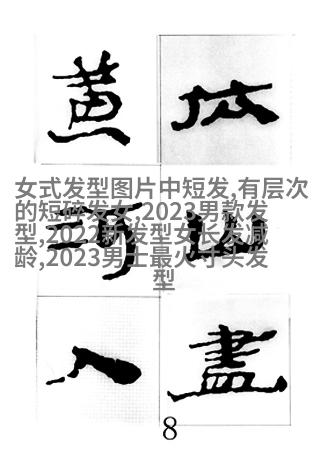 依山盡
黃河入
女式发型图片中短发,有层次
的短碎发女,2023男款发
型,2022新发型女长发减
龄,2023男士最火寸头发
型
8